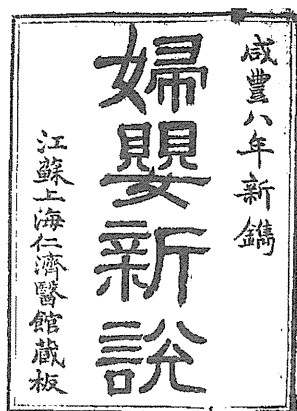 咸豐八年新鐫
婦嬰新說
江蘇上海仁濟醫館藏板